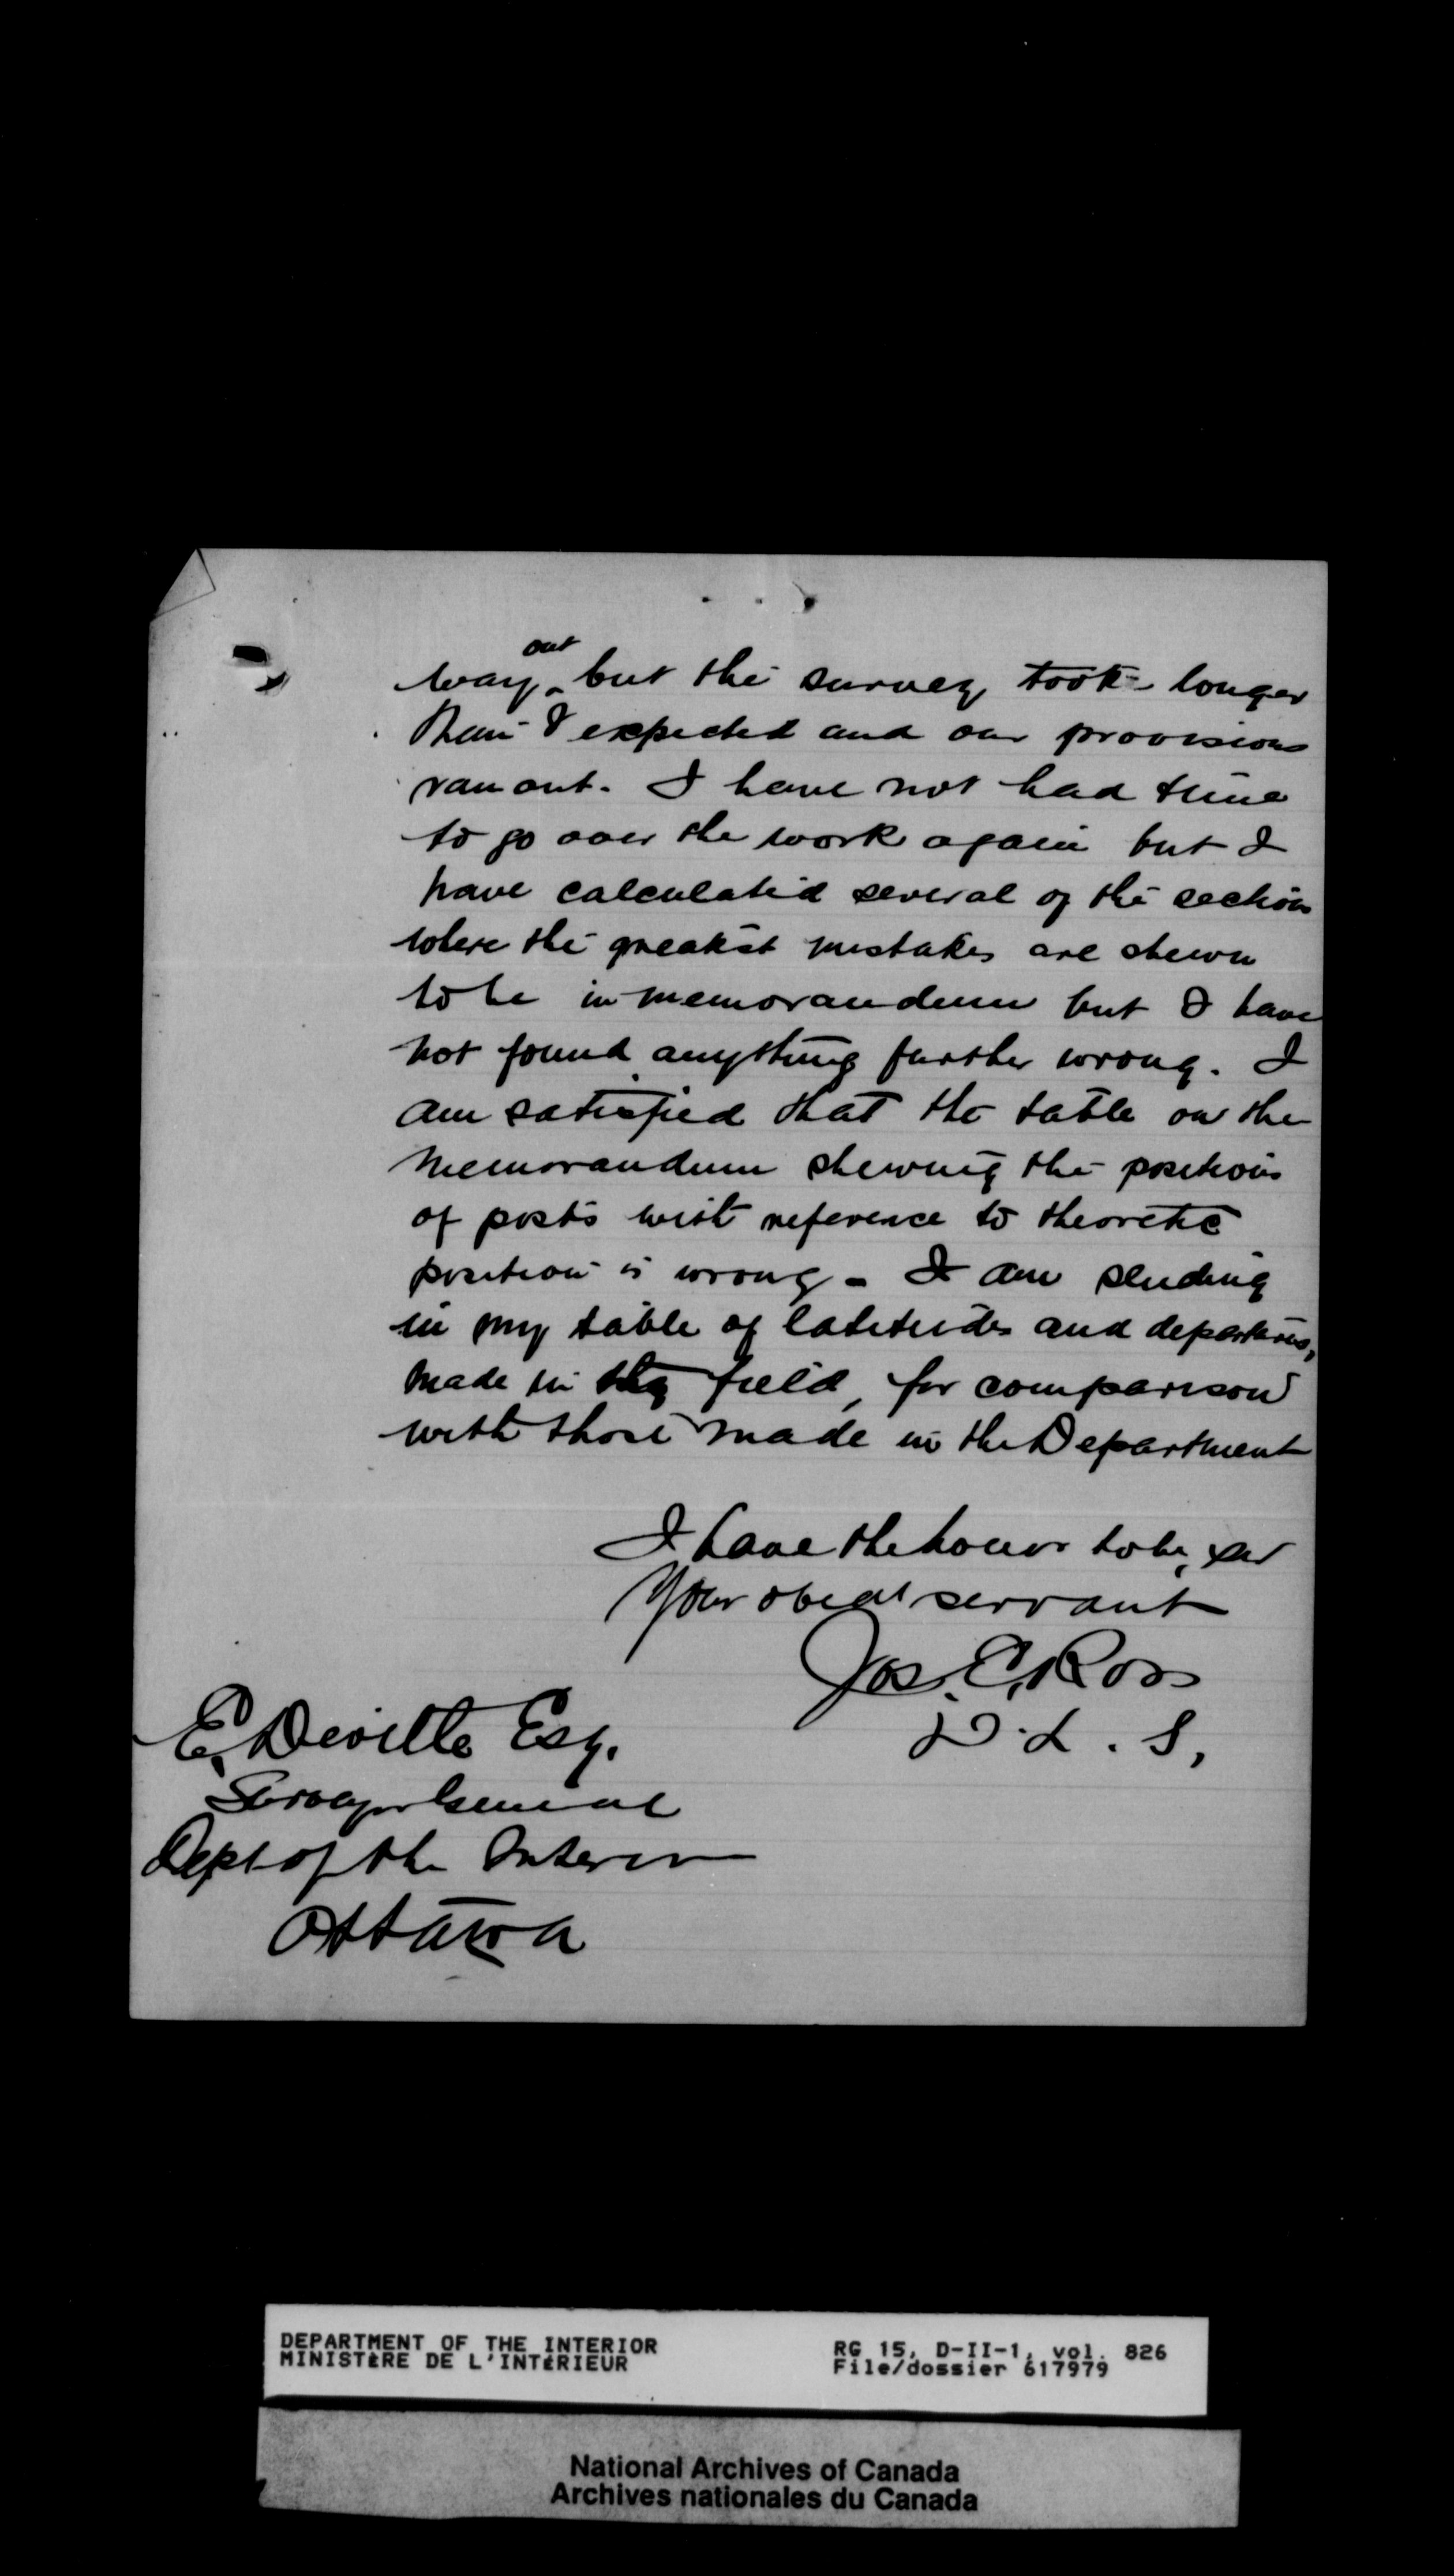 way out but the survey took longer
than I expected and our provisions
ran out. I have not had time
to go over the work again but I
have calculated several of the sections
where the greatest mistakes are shewn
to be in memorandum but I have
not found anything further wrong. I
am satisfied that the table on the
memorandum shewing the positions
of posts with reference to theoretic
position is wrong - I am sending
in my table of latitudes and departures,
made in the field, for comparison
with those made in the Department
I have the honor to be, sir
Your obedt servant
Jos. E. Ross
D. L. S,
E. Deville Esq.
Surveyor General
Dept of the Interior
Ottawa
DEPARTMENT OF THE INTERIOR
MINISTÈRE DE L'INTÉRIEUR
RG 15, D-II-1, vol. 826
File/dossier 617979
National Archives of Canada
Archives nationales du Canada